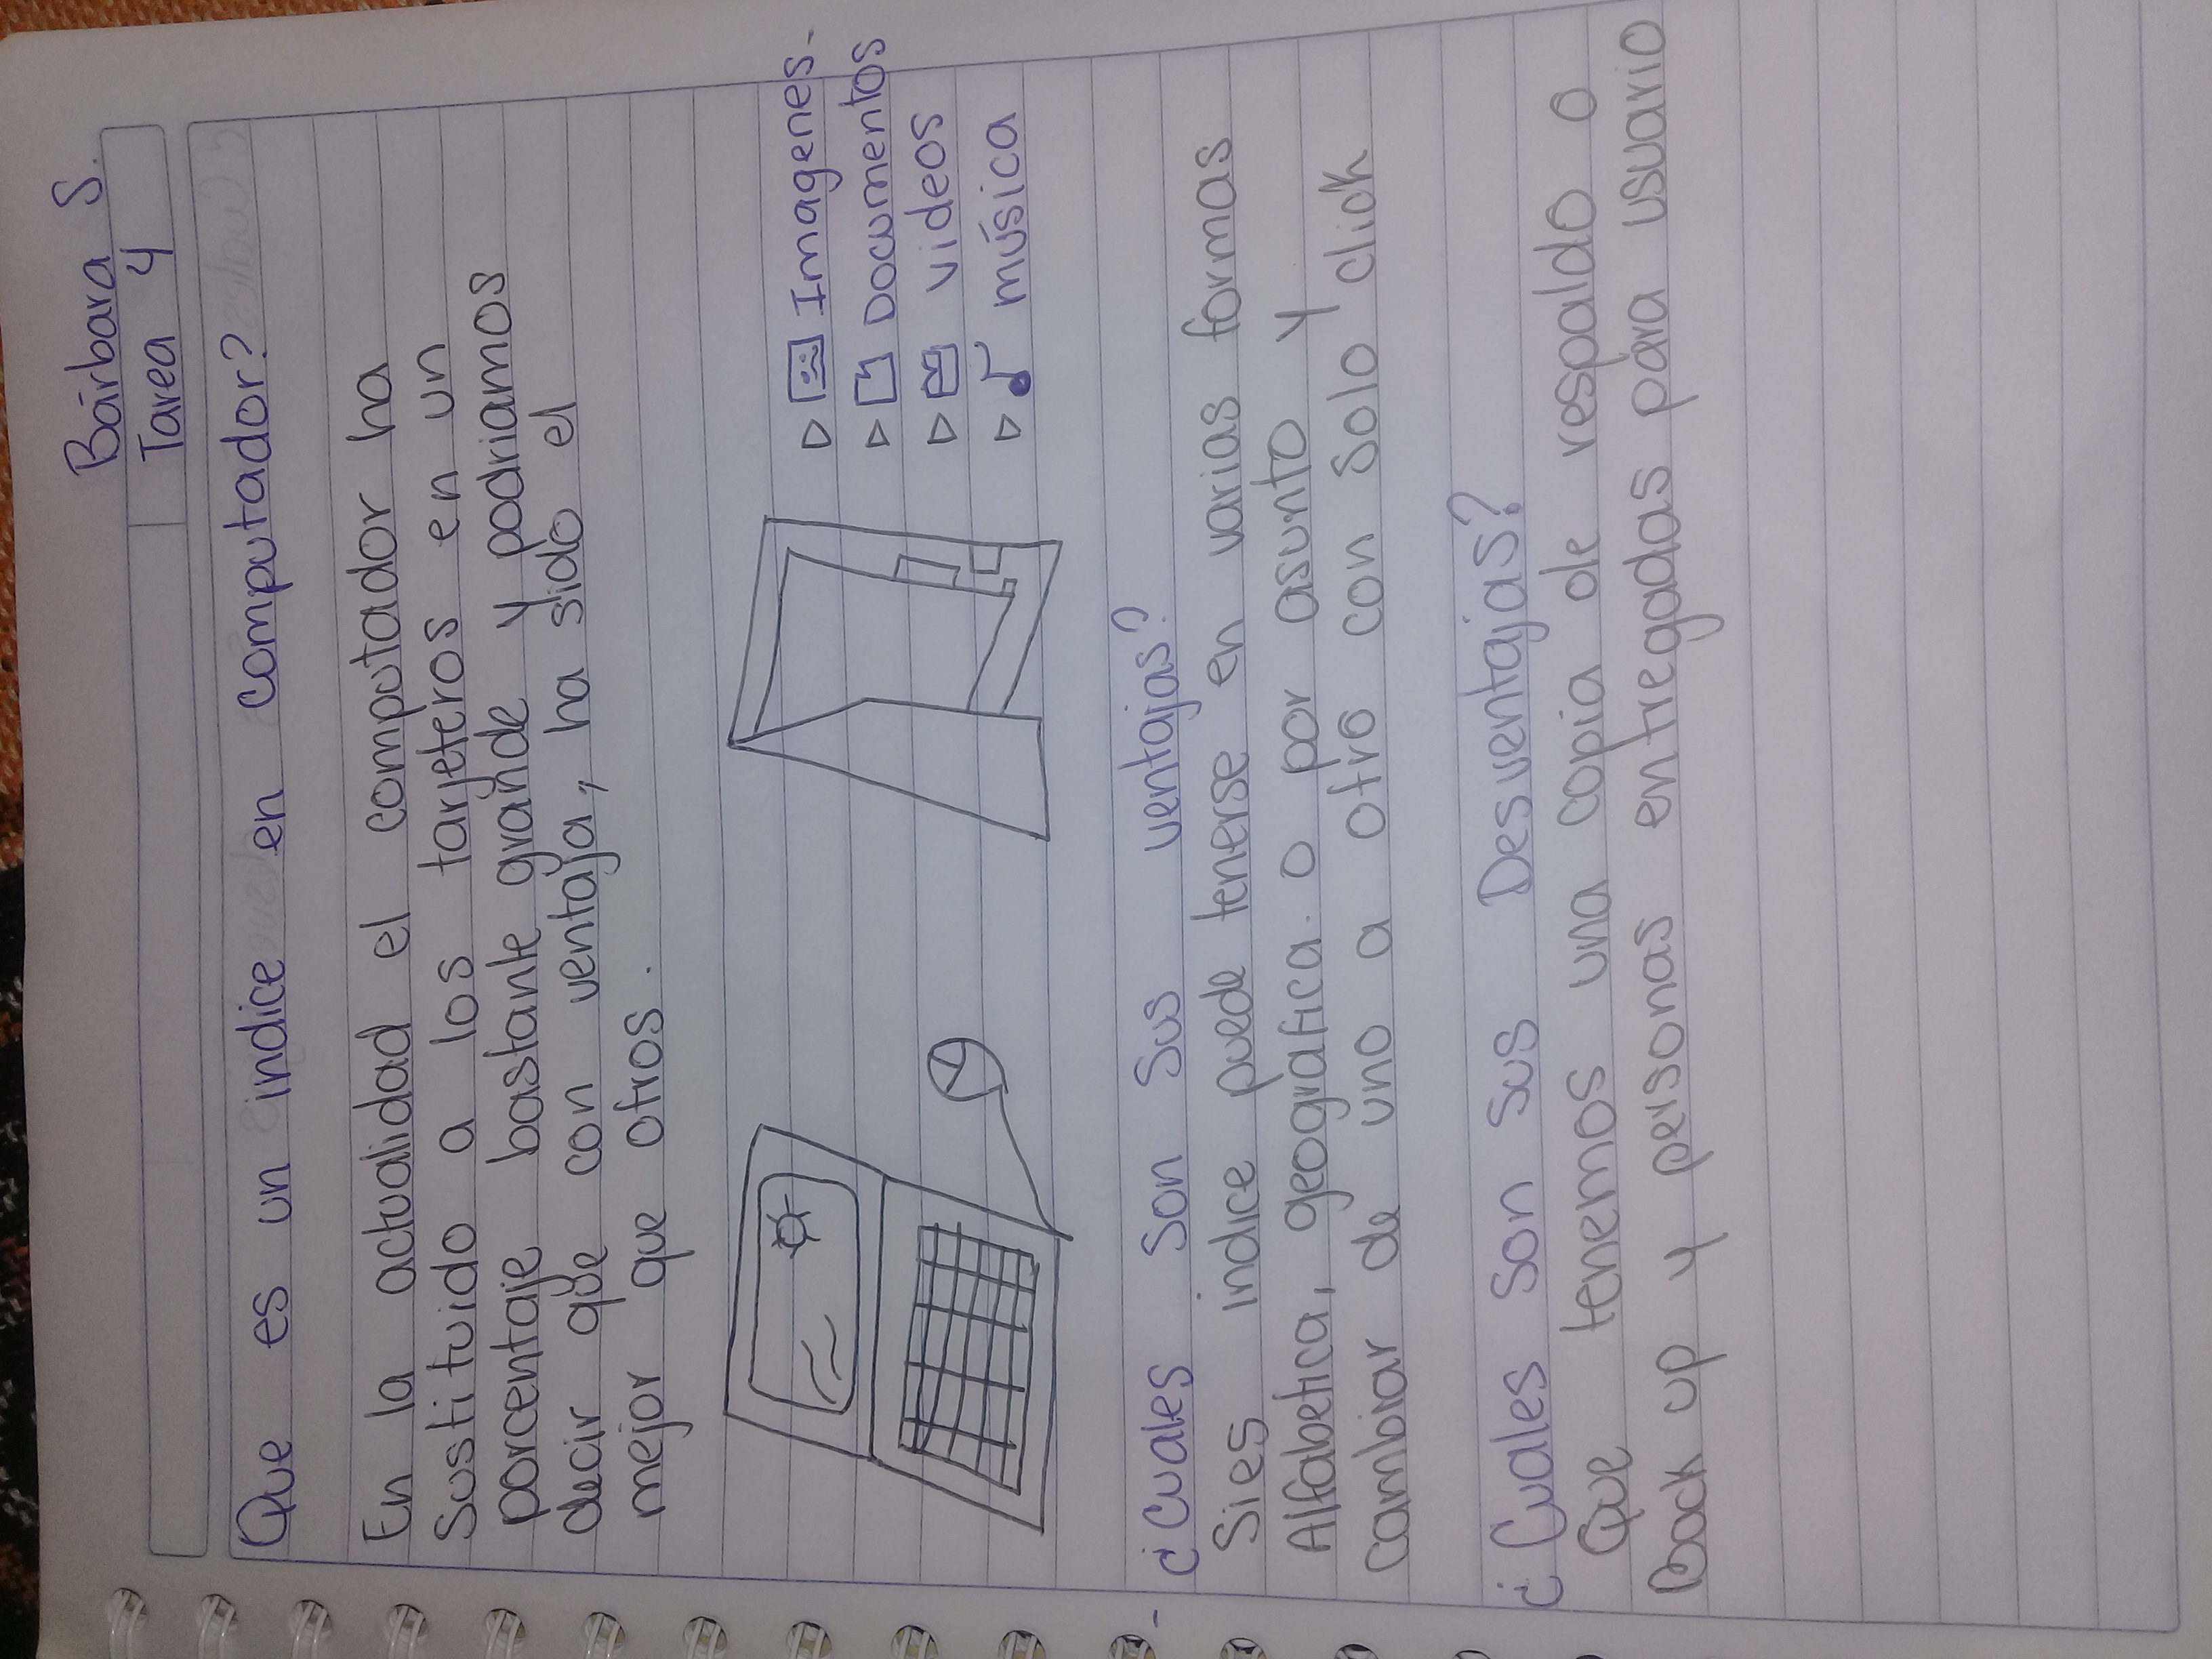 Bárbara S.
Tarea 4
Que es un indice en computador?
En la actualidad el computador ha
Sustituido a los tarjeteros en un
porcentaje bastante grande y podriamos
decir que con ventaja, ha sido el
mejor que otros.
▷ Imagenes-
▷ Documentos
▷ videos
▷ música
¿Cuales Son Sus ventajas?
Sies indice puede tenerse en varias formas
Alfabetica, geografica. o por asunto y
cambiar de uno a otro con Solo click
¿Cuales Son Sus Desventajas?
Que tenemos una copia de respaldo o
Back up y personas entregadas para usuario